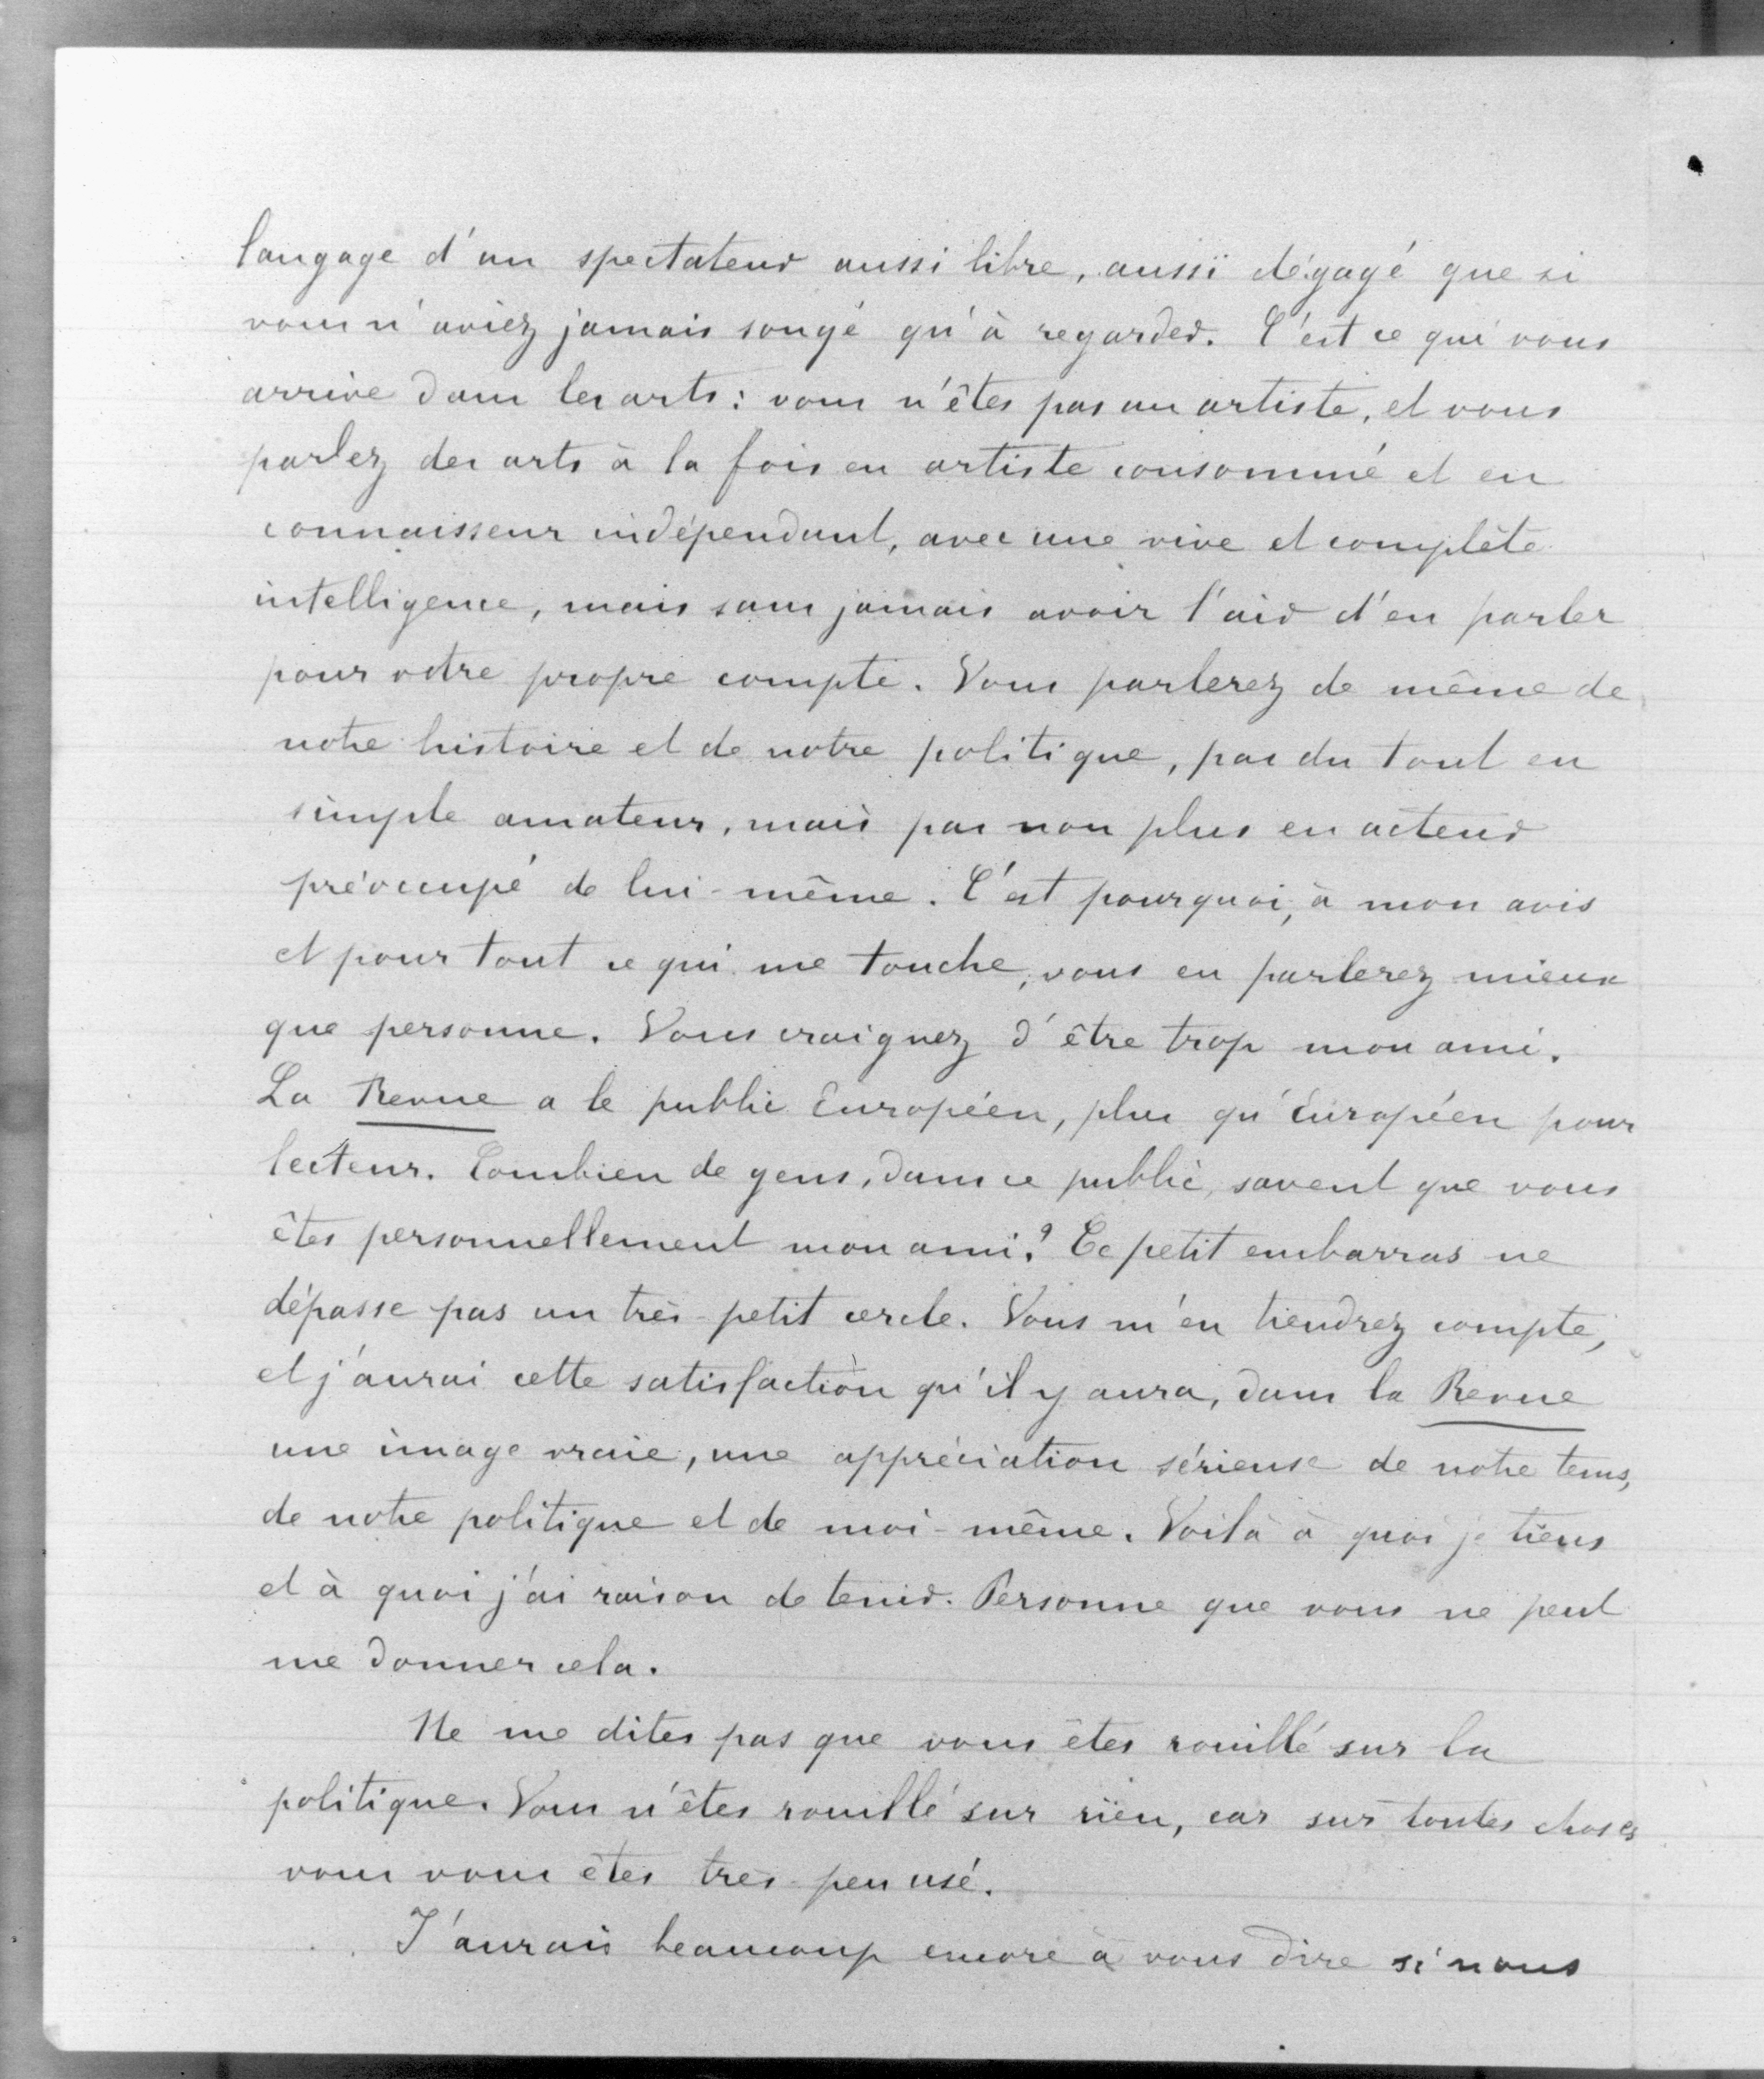 langage d'un spectateur aussi libre, aussi dégagé que si
vous n'aviez jamais songé qu'à regarder. C'est ce qui vous
arrive dans les arts : vous n'êtes pas un artiste, et vous
parlez des arts à la fois en artiste consommé et en
connaisseur indépendant, avec une vive et complète
intelligence, mais sans jamais avoir l'air d'en parler
pour votre propre compte. Vous parlerez de même de
notre histoire et de notre politique, pas du tout en
simple amateur, mais pas non plus en acteur
préoccupé de lui-même. C'est pourquoi, à mon avis
et pour tout ce qui me touche, vous en parlerez mieux
que personne. Vous craignez d'être trop mon ami.
La Revue a le public Européen, plus qu'Européen pour
lecteur. Combien de gens, dans ce public, savent que vous
êtes personnellement mon ami ? Ce petit embarras ne
dépasse pas un très-petit cercle. Vous m'en tiendrez compte,
et j'aurai cette satisfaction qu'il y aura, dans la Revue
une image vraie, une appréciation sérieuse de notre tems,
de notre politique et de moi-même. Voilà à quoi je tiens
et à quoi j'ai raison de tenir. Personne que vous ne peut
me donner cela.
Ne me dites pas que vous êtes rouillé sur la
politique. Vous n'êtes rouillé sur rien, car sur toutes choses
vous vous êtes très-peu usé.
J'aurais beaucoup encore à vous dire si nous